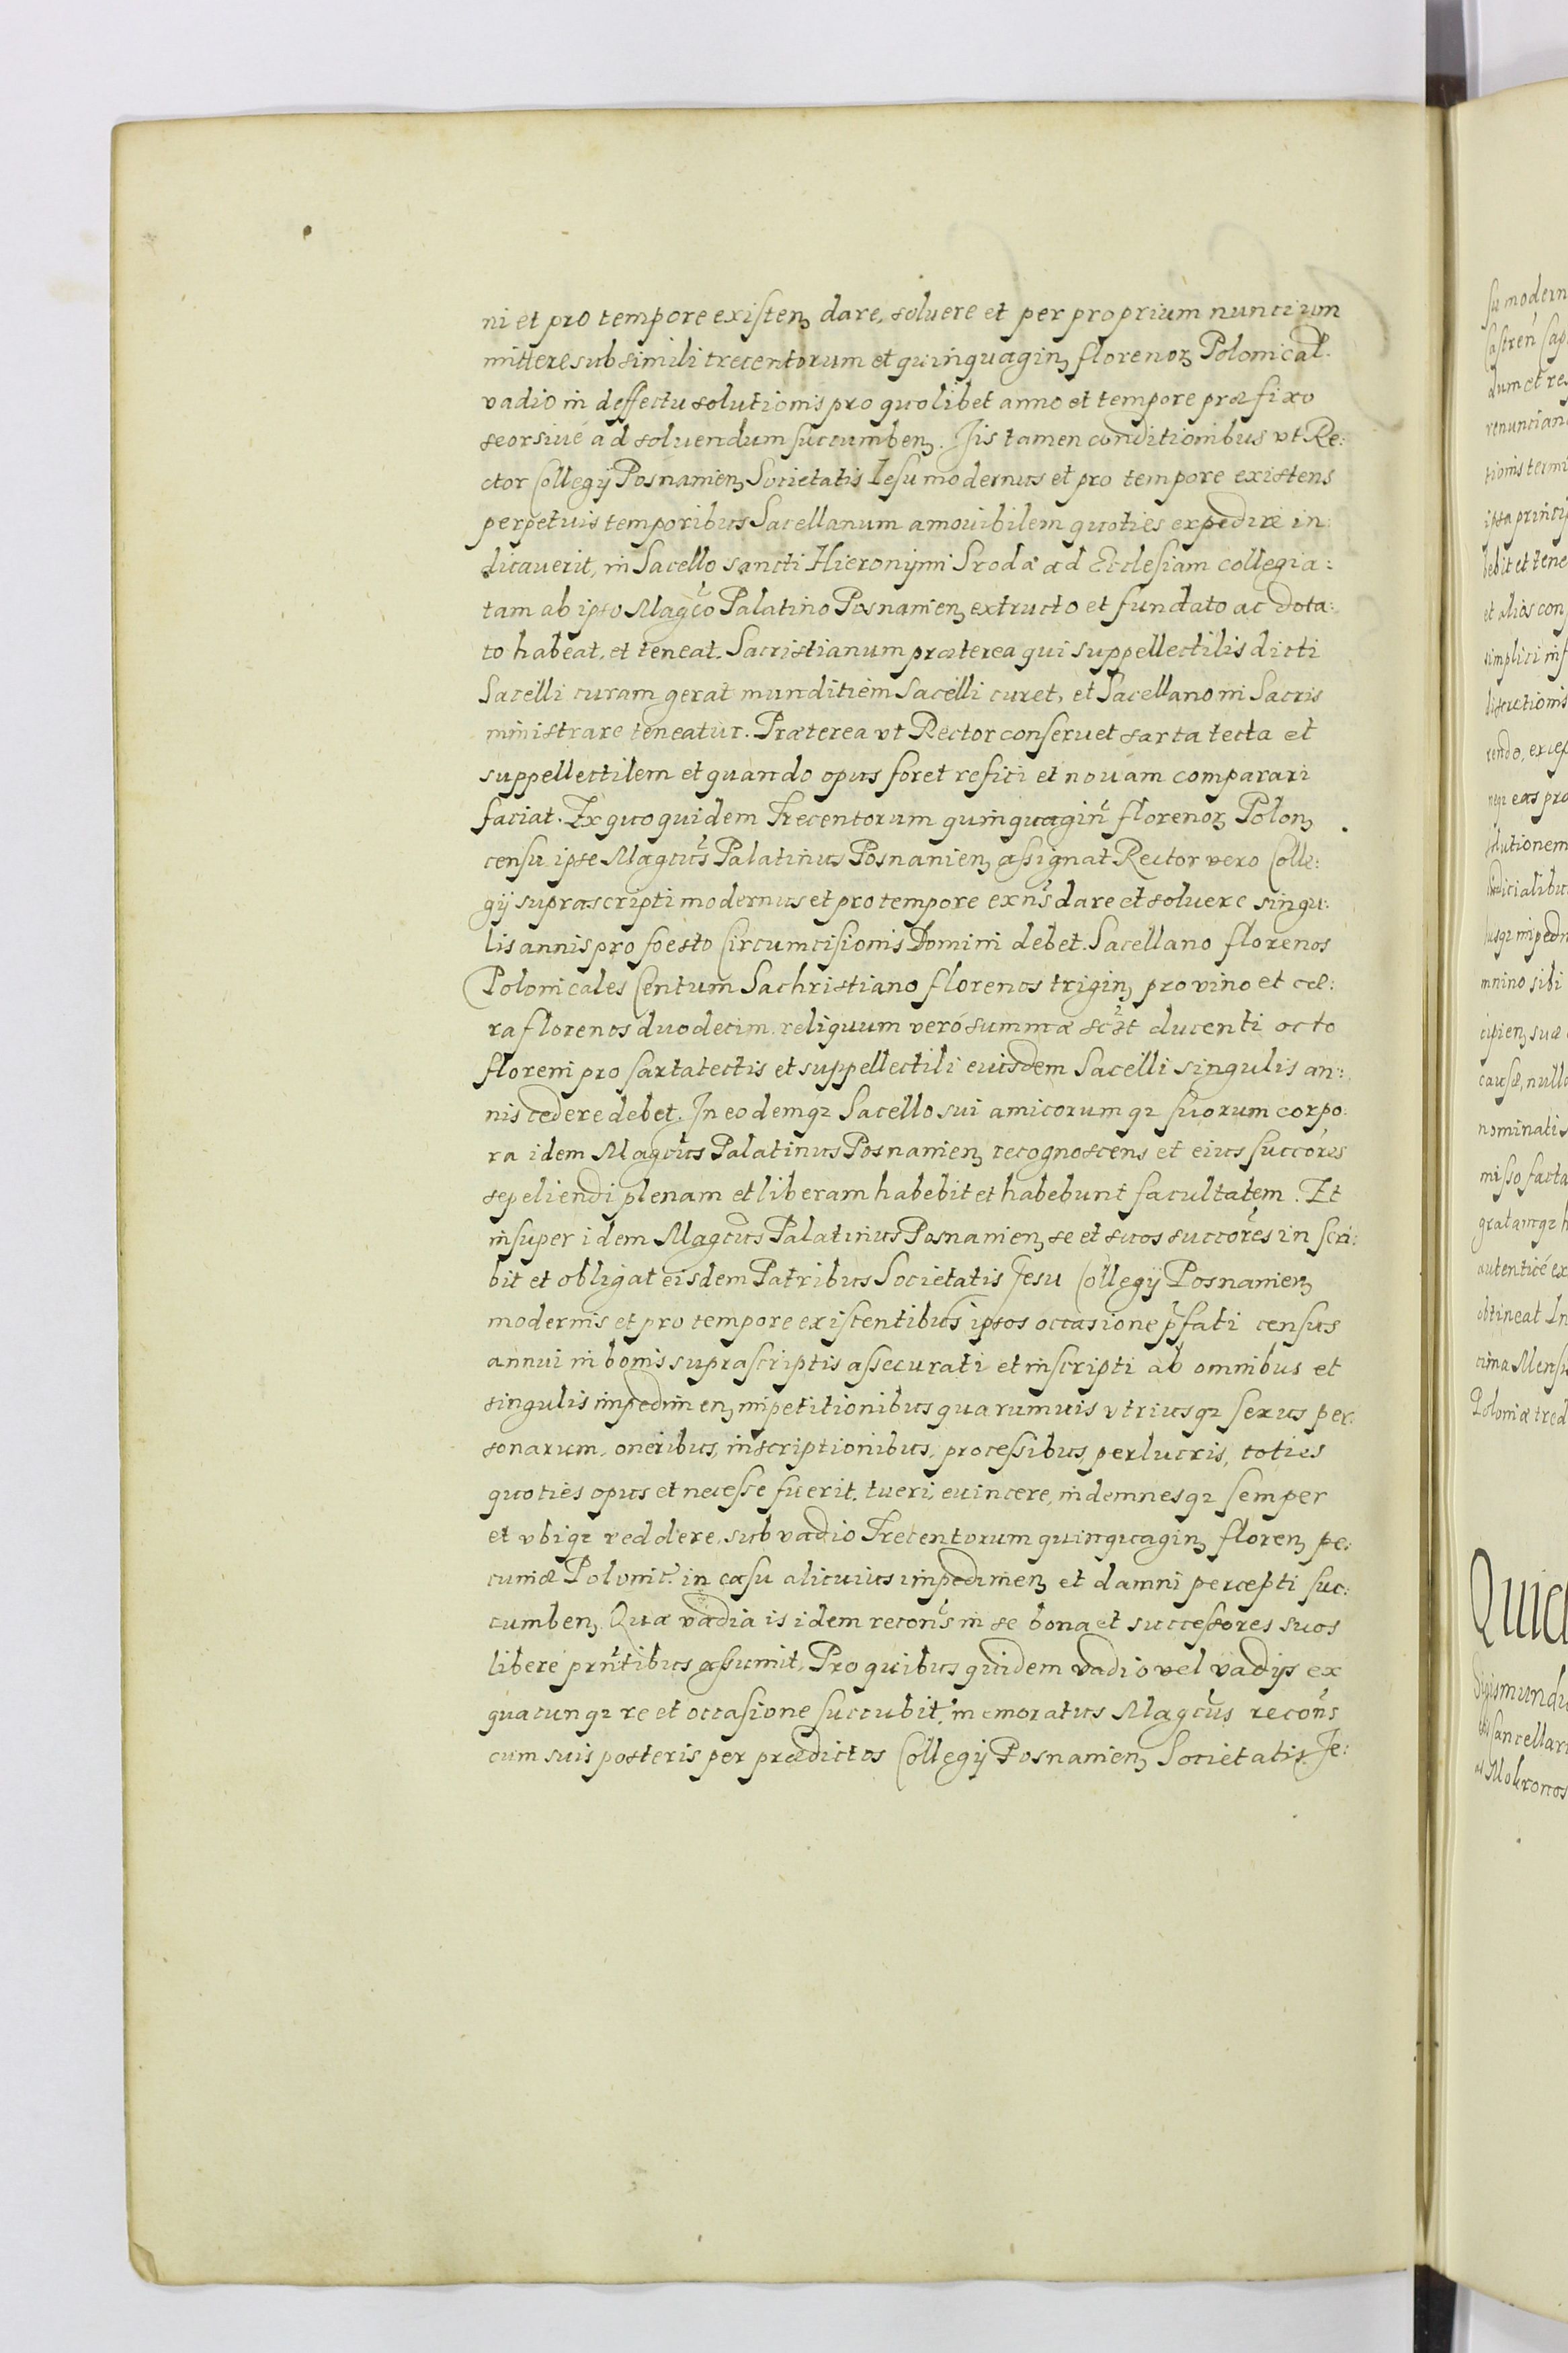 ni et pro tempore existenȝ dare, soluere et per proprium nuncium
mittere sub simili trecentorum et quinquaginȝ florenoȝ Polonical.
vadio in deffectu solutionis pro quolibet anno et tempore præfixo
seorsiué ad soluendum succumbenȝ. Jis tamen conditionibus vt Re:
ctor Collegij Posnanienȝ Societatis Iesu modernus et pro tempore existens
perpetuis temporibus Sacellanum amouibilem quoties expedire in:
dicauerit, in Sacello sancti Hieronymi Srodæ ad Ecclesiam collegia:
tam ab ipso Magco Palatino Posnanienȝ extructo et fundato ac dota:
to habeat, et teneat. Sacristianum præterea qui suppellectilis dicti
Sacelli curam gerat munditiem Sacelli curet, et Sacellano in Sacris
ministrare teneatur. Præterea vt Rector conseruet sarta tecta et
suppellectilem et quando opus foret refici et nouam comparari
faciat. Ex quo quidem Trecentorum quinquagin florenoȝ Polonȝ
censu ipse Magcus Palatinus Posnanienȝ assignat Rector vero Colle:
gij suprascripti modernus et pro tempore exns dare et soluere singu:
lis annis pro foesto Circumcisionis Domini debet. Sacellano florenos
Polonicales Centum Sachristiano florenos triginȝ pro vino et cæ:
ra florenos duodecim, reliquum veró summæ sczt ducenti octo
floreni pro sartatectis et suppellectili eiusdem Sacelli singulis an:
nis cedere debet. In eodemqꝫ Sacello sui amicorumqꝫ suorum corpo:
ra idem Magcus Palatinus Posnanienȝ recognoscens et eius succores
sepeliendi plenam et liberam habebit et habebunt facultatem. Et
insuper idem Magcus Palatinus Posnanienȝ se et suos succores inscri:
bit et obligat eisdem Patribus Societatis Jesu Collegij Posnanienȝ
modernis et pro tempore existentibus ipsos occasione pfati census
annui in bonis suprascriptis assecurati et inscripti ab omnibus et
singulis impedimenȝ impetitionibus quarumuis vtriusqꝫ sexus per:
sonarum, oneribus, inscriptionibus, processibus, perlucris, toties
quoties opus et necesse fuerit. tueri, euincere, indemnesqꝫ semper
et vbiqꝫ reddere, sub vadio Trecentorum quinquaginȝ florenȝ pe:
cuniæ Polonic. in casu alicuius impedimenȝ et damni percepti suc:
cumbenȝ Quæ vadia is idem recons in se bona et successores suos
liberé prntibus assumit. Pro quibus quidem vadio vel vadijs ex
quacunqꝫ re et occasione succubit, memoratus Magcus recons
cum suis posteris per prædictos Collegij Posnanienȝ Societatis Je:
su modern
Castren Cap
dum et re
renuncian
tionis termi
ipsa princi
bebit et tene
et alias con
simplici inf
rendo, excep
neqꝫ eas pro
solutionem
mnino sibi
cipienȝ suæ
causæ, nulla
nominati
misso facta
gratamqꝫ h
autenticé ex
obtineat In
Poloniæ tred
Quia
Sigismundu
Cancellari
Mokronos